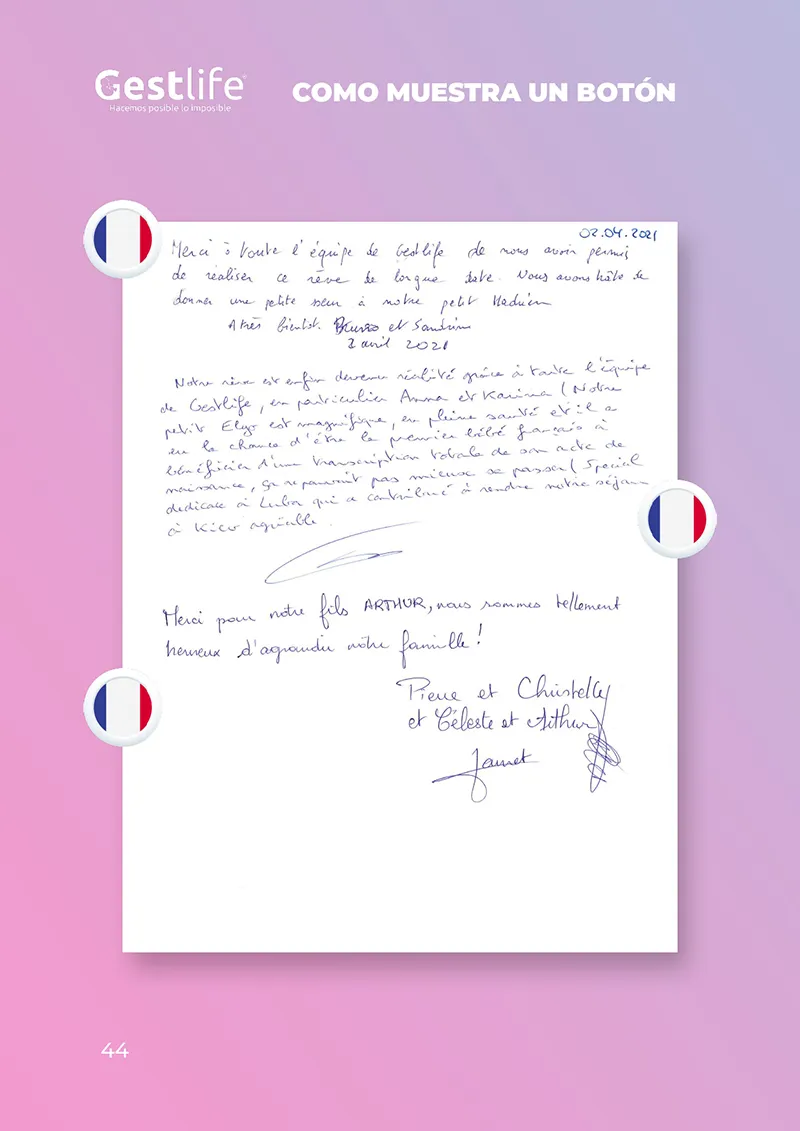 Gestlife
Hacemos posible lo imposible
COMO MUESTRA UN BOTÓN
02.04.2021
Merci à toute l'équipe de Gestlife de nous avoir permis
de réaliser ce rêve de longue date. Nous avons hâte de
donner une petite sœur à notre petit
A très bientôt. Bruno et Sandrine
2 avril 2021
Notre rêve est enfin devenu réalité grâce à toute l'équipe
de Gestlife, en particulier Anna et Karina! Notre
petit Elyo est magnifique, en pleine santé et il a
eu la chance d'être le premier bébé français à
bénéficier d'une transcription totale de son acte de
naissance, ça ne pouvait pas mieux se passer! Special
dedicace à Luba qui a contribué à rendre notre séjour
à Kiev agréable.
Merci pour notre fils ARTHUR, nous sommes tellement
heureux d'agrandir notre famille!
Pierre et Christelle
et Céleste et Arthur
44